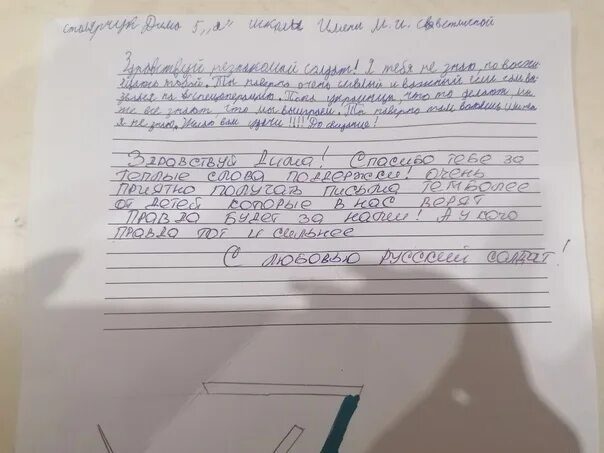 Дина 5 "а" школа Имени М. И.
Здравствуй незнакомый солдат! Я тебя не знаю, но
тобой. Ты наверно очень смелый и важный если
на спецоперацию. Пока украинцы что то делают, мы
же все знаем что мы выиграем. Ты наверно там
я не знаю. Желаю вам удачи!!!! До свидание!
Здравствуй Диана! Спасибо тебе за
теплые слова поддержки! Очень
приятно получать письма темболее
от детей которые в нас верят
Правда будет за нами! А у кого
правда тот и сильнее
С любовью русский солдат!